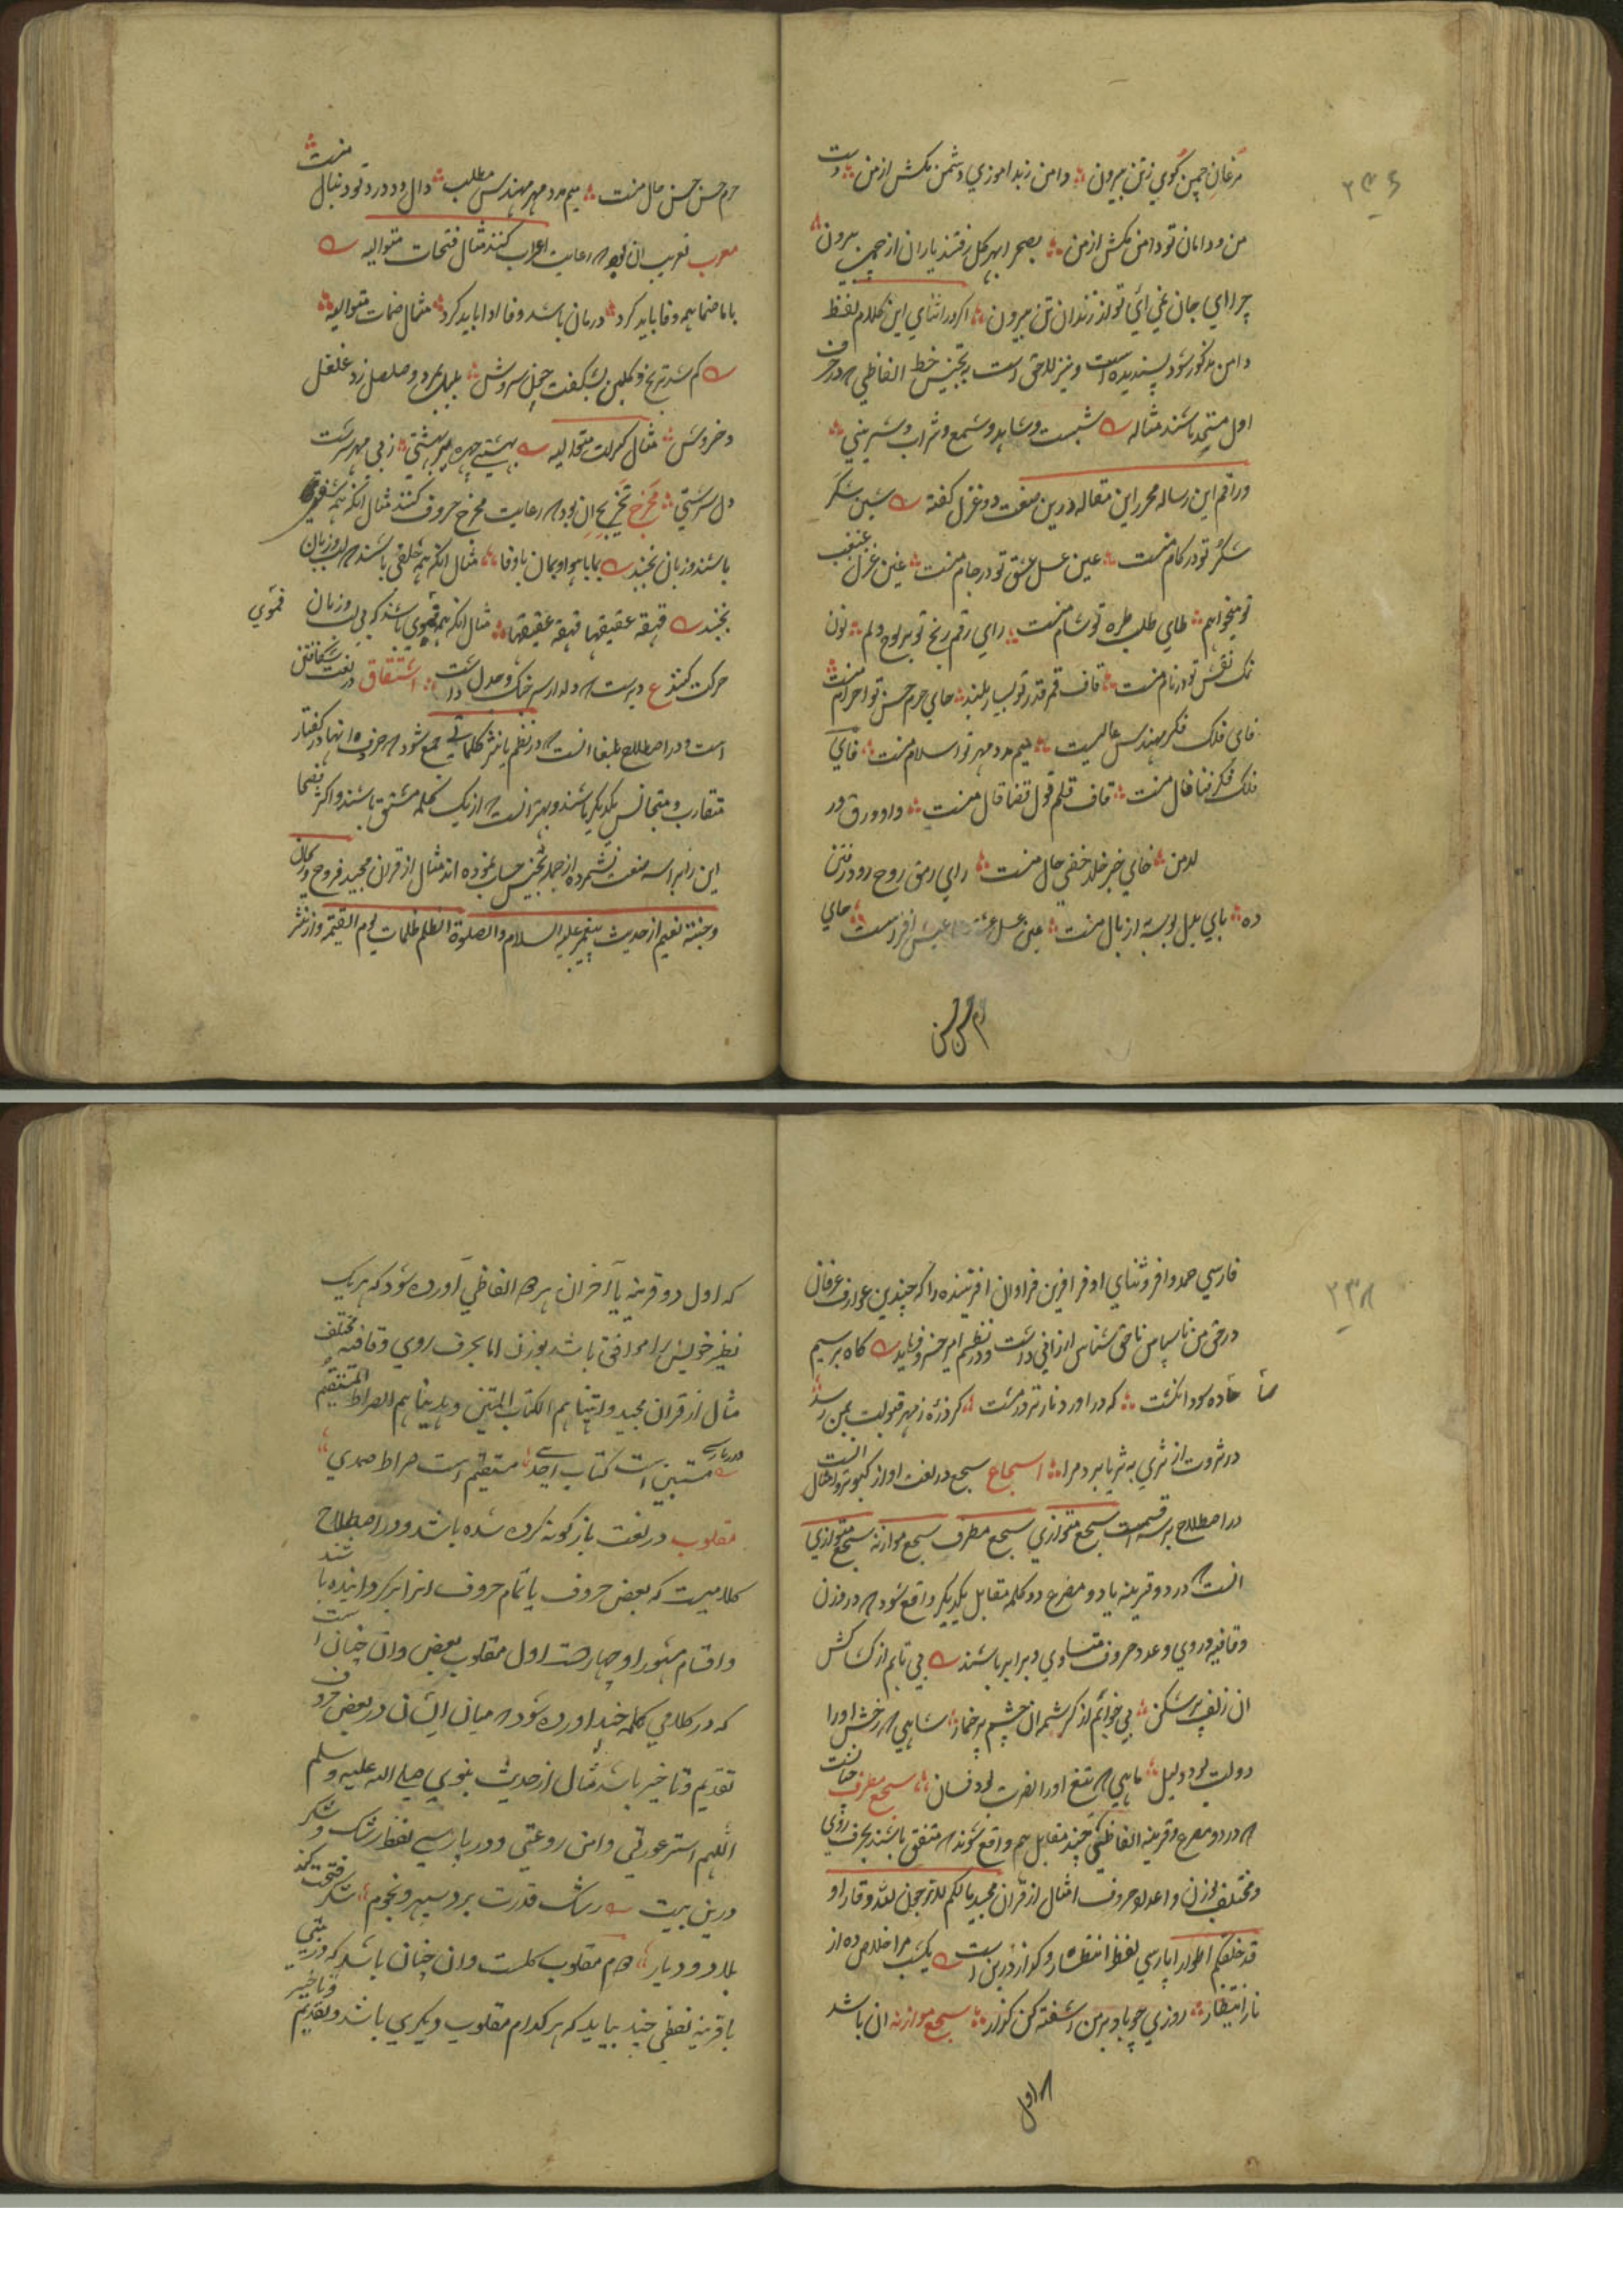 ۲۳۶
مرغان چمن گوی زتن بیرون دامن زبد اموزی دشمن مکش از من دست
من و دامان تو دامن مکش از من بصحرا بهر گل رفتند یاران از چمن بیرون
چرا ای جان نمی ائی تو از زندان تن بیرون اگر در اثنای این کلام لفظ
دامن مذکور شود پسندیده است و نیز لاحق است به تجنیس خط الفاظی که در حرف
اول متحد باشند مثاله شبست و شاهد و شمع و شراب و شیرینی
و راقم این رساله محرر این مقاله درین صنعت دو غزل گفته شین شکر
شکر تو در کام منست عین عسل عشق تو در جام منست غین غزل غبغب
تو میخواهم طای طلب طره تو شام منست رای رقم رنج تو بر لوح دلم نون
نمک نقش تو در نام منست قاف قمر قدر تو بسیار بلند حای حرم حسن تو احرام منست
فای فلک فکر مهندس عالیست میم مدد مهر تو اسلام منست فای
فلک فکر فنا فال منست قاف قلم قول قضا قال منست دا و ورق در
لدمن خای خبر خلد خفی حال منست رای رمق روح رود رفتن
ده بای بلبل بوسه از بال منست عین عسل عیش افزاست حای
حرم حسن
حرم حسن حسن حال منست میم مدد مهر مهندس مطلب دال دو درد تو دنبال منست
معرب تعریب ان بود که رعایت اعراب کنند مثال فتحات متوالیه
باما صنما همه وفا باید کرد درمان باشد وفا ادا باید کرد مثال ضمات متوالیه
گم شد ترنج و گلبن بشکفت چون سروش بلبل و صلصل زد غلغل
و خروش مثال کسرات متوالیه بهشتی چهره بهشتی زنی مهر سرشت
دل سرشتی مخرج تخریج ان بود که رعایت مخرج حروف کنند مثال انکه همه شفوی
باشند و زبان نجنبد بابا هوا و بمان باوفا مثال انکه همه حلقی باشند که لب و زبان
نجنبد قهقه عقیقها قهقه عقیقها مثال انکه همه فموی باشند که بی لب و زبان فموی
حرکت کنند ع دیرست که دلدار سر جنگ و جدل داشت اشتقاق در لغت شکافتن
است و در اصطلاح بلغا انست که در نظم یا نثر کلماتی جمع شود که حروف انها در گفتار
متقارب و متجانس یکدیگر باشند و بهتر انست که از یک کلمه مشتق باشند و اکثر فصحا
این را براسه صنعت نشمرده از جمله تجنیس حساب نموده اند مثال از قران مجید فروح و ریحان
و جنة نعیم از حدیث پیغمبر علیه السلام و الصلوة الظلم ظلمات یوم القیمة و از نثر
۲۳۸
فارسی حمد وافر و ثنای اوفر افرین فراوان افریننده را که چندین عوارف عرفان
در حق من ناسپاس ناحق شناس ارزانی داشت و در نظم امیر خسرو فرماید گاه برسیم
ساده سود انگشت که در او دینار تر درمشت گر ذره ز مهر قبولت بمن رسد
در ثروت از ثری به ثریا برد مرا اسجاع سجع در لغت اواز کبوتر و امثال انست
در اصطلاح بر سه قسمست سجع متوازی سجع مطرف سجع موازنه سجع متوازی
انست که در دو قرینه یا دو مصرع دو کلمه مقابل یکدیگر واقع شود که در وزن
و قافیه و روی و عدد حروف متساوی و برابر باشند بی تابم از کشاکش
ان زلف پر شکن بی خوابم از کرشمه ان چشم پر خمار شاهی که رخش او را
دولت بود دلیل ماهی که تیغ او را نصرت بود فسان سجع مطرف چنانست
که در دو مصرع دو قرینه الفاظی چند مقابل هم واقع شوند که متفق باشند بحرف روی
و مختلف بوزن و اعداد حروف امثال از قران مجید مالکم لاترجون لله وقارا و
قد خلقکم اطوارا پارسی لفظ انتظار و گذار درین است یکشب مرا خلاص ده از
نار انتظار روزی چو باد بر من اشفته کن گذار سجع موازنه ان باشد
که اول
که اول دو قرینه یا اخر ان هر دو الفاظی اورده شود که هر یک
نظیر خویش را موافق باشد بوزن اما بحرف روی و قافیه مختلف
مثال از قران مجید و اتیناهم الکتاب المستبین و هدیناهم الصراط المستقیم
در پارسی مستبین است کتاب احدی مستقیم است صراط صمدی
مقلوب در لغت بازگونه کرده شده باشد و در اصطلاح
کلامیست که بعض حروف یا تمام حروف انرا برگردانیده باشند
و اقسام مشهور او چهارست اول مقلوب بعض و ان چنان است
که در کلامی کلمه چند اورده شود که میان ایشان در بعض حروف
تقدیم و تاخیر باشد مثال از حدیث نبوی صلی الله علیه و سلم
اللهم استر عورتی و امن روعتی و در پارسی لفظ رشک و شکر
درین بیت رشک قدرت برد سپهر و نجوم شکر فتحت کند
بلاد و دیار دوم مقلوب کلست و ان چنان باشد که در بیتی
یا قرینه لفظی چند بیاید که هر کدام مقلوب دیگری باشد و تقدیم و تاخیر